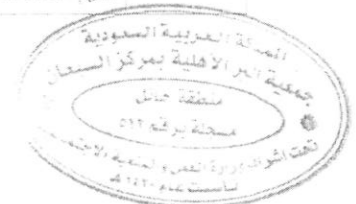 المملكة العربية السعودية
جمعية البر الأهلية بمركز السبعان
منطقة حائل
مسجلة برقم ٥٦٢
تحت اشراف وزارة العمل و التنمية الاجتماعية
تأسست عام ١٤٢٠ هـ